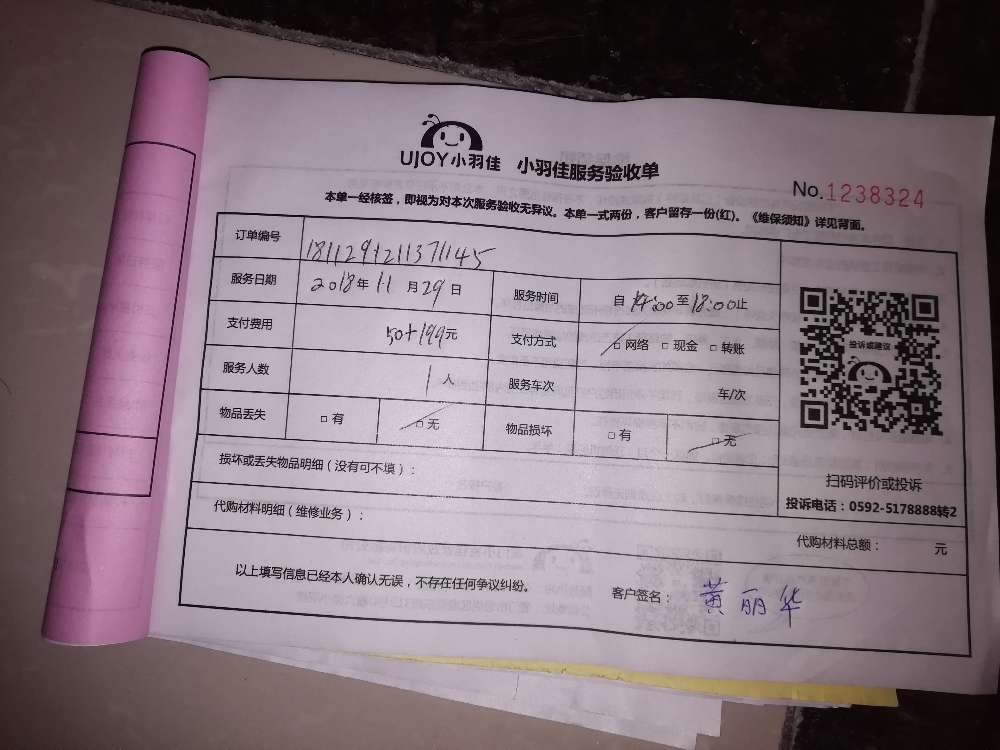 UJOY小羽佳 小羽佳服务验收单
No.1238324
本单一经核签，即视为对本次服务验收无异议。本单一式两份，客户留存一份(红)。《维保须知》详见背面。
订单编号 1811291211371145
服务日期 2018年11月29日 服务时间 自14:00至18:00止
支付费用 50+199元 支付方式 □网络 □现金 □转账
服务人数 1人 服务车次 车/次
物品丢失 □有 □无 物品损坏 □有 □无
投诉或建议
扫码评价或投诉
投诉电话：0592-5178888转2
损坏或丢失物品明细（没有可不填）：
代购材料明细（维修业务）：
代购材料总额： 元
以上填写信息已经本人确认无误，不存在任何争议纠纷。
客户签名：黄丽华